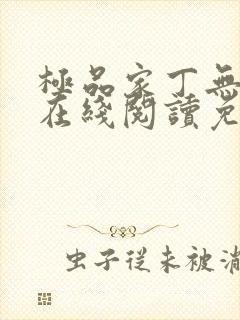 極品家丁無
在綫閱讀免
虫子從未被消